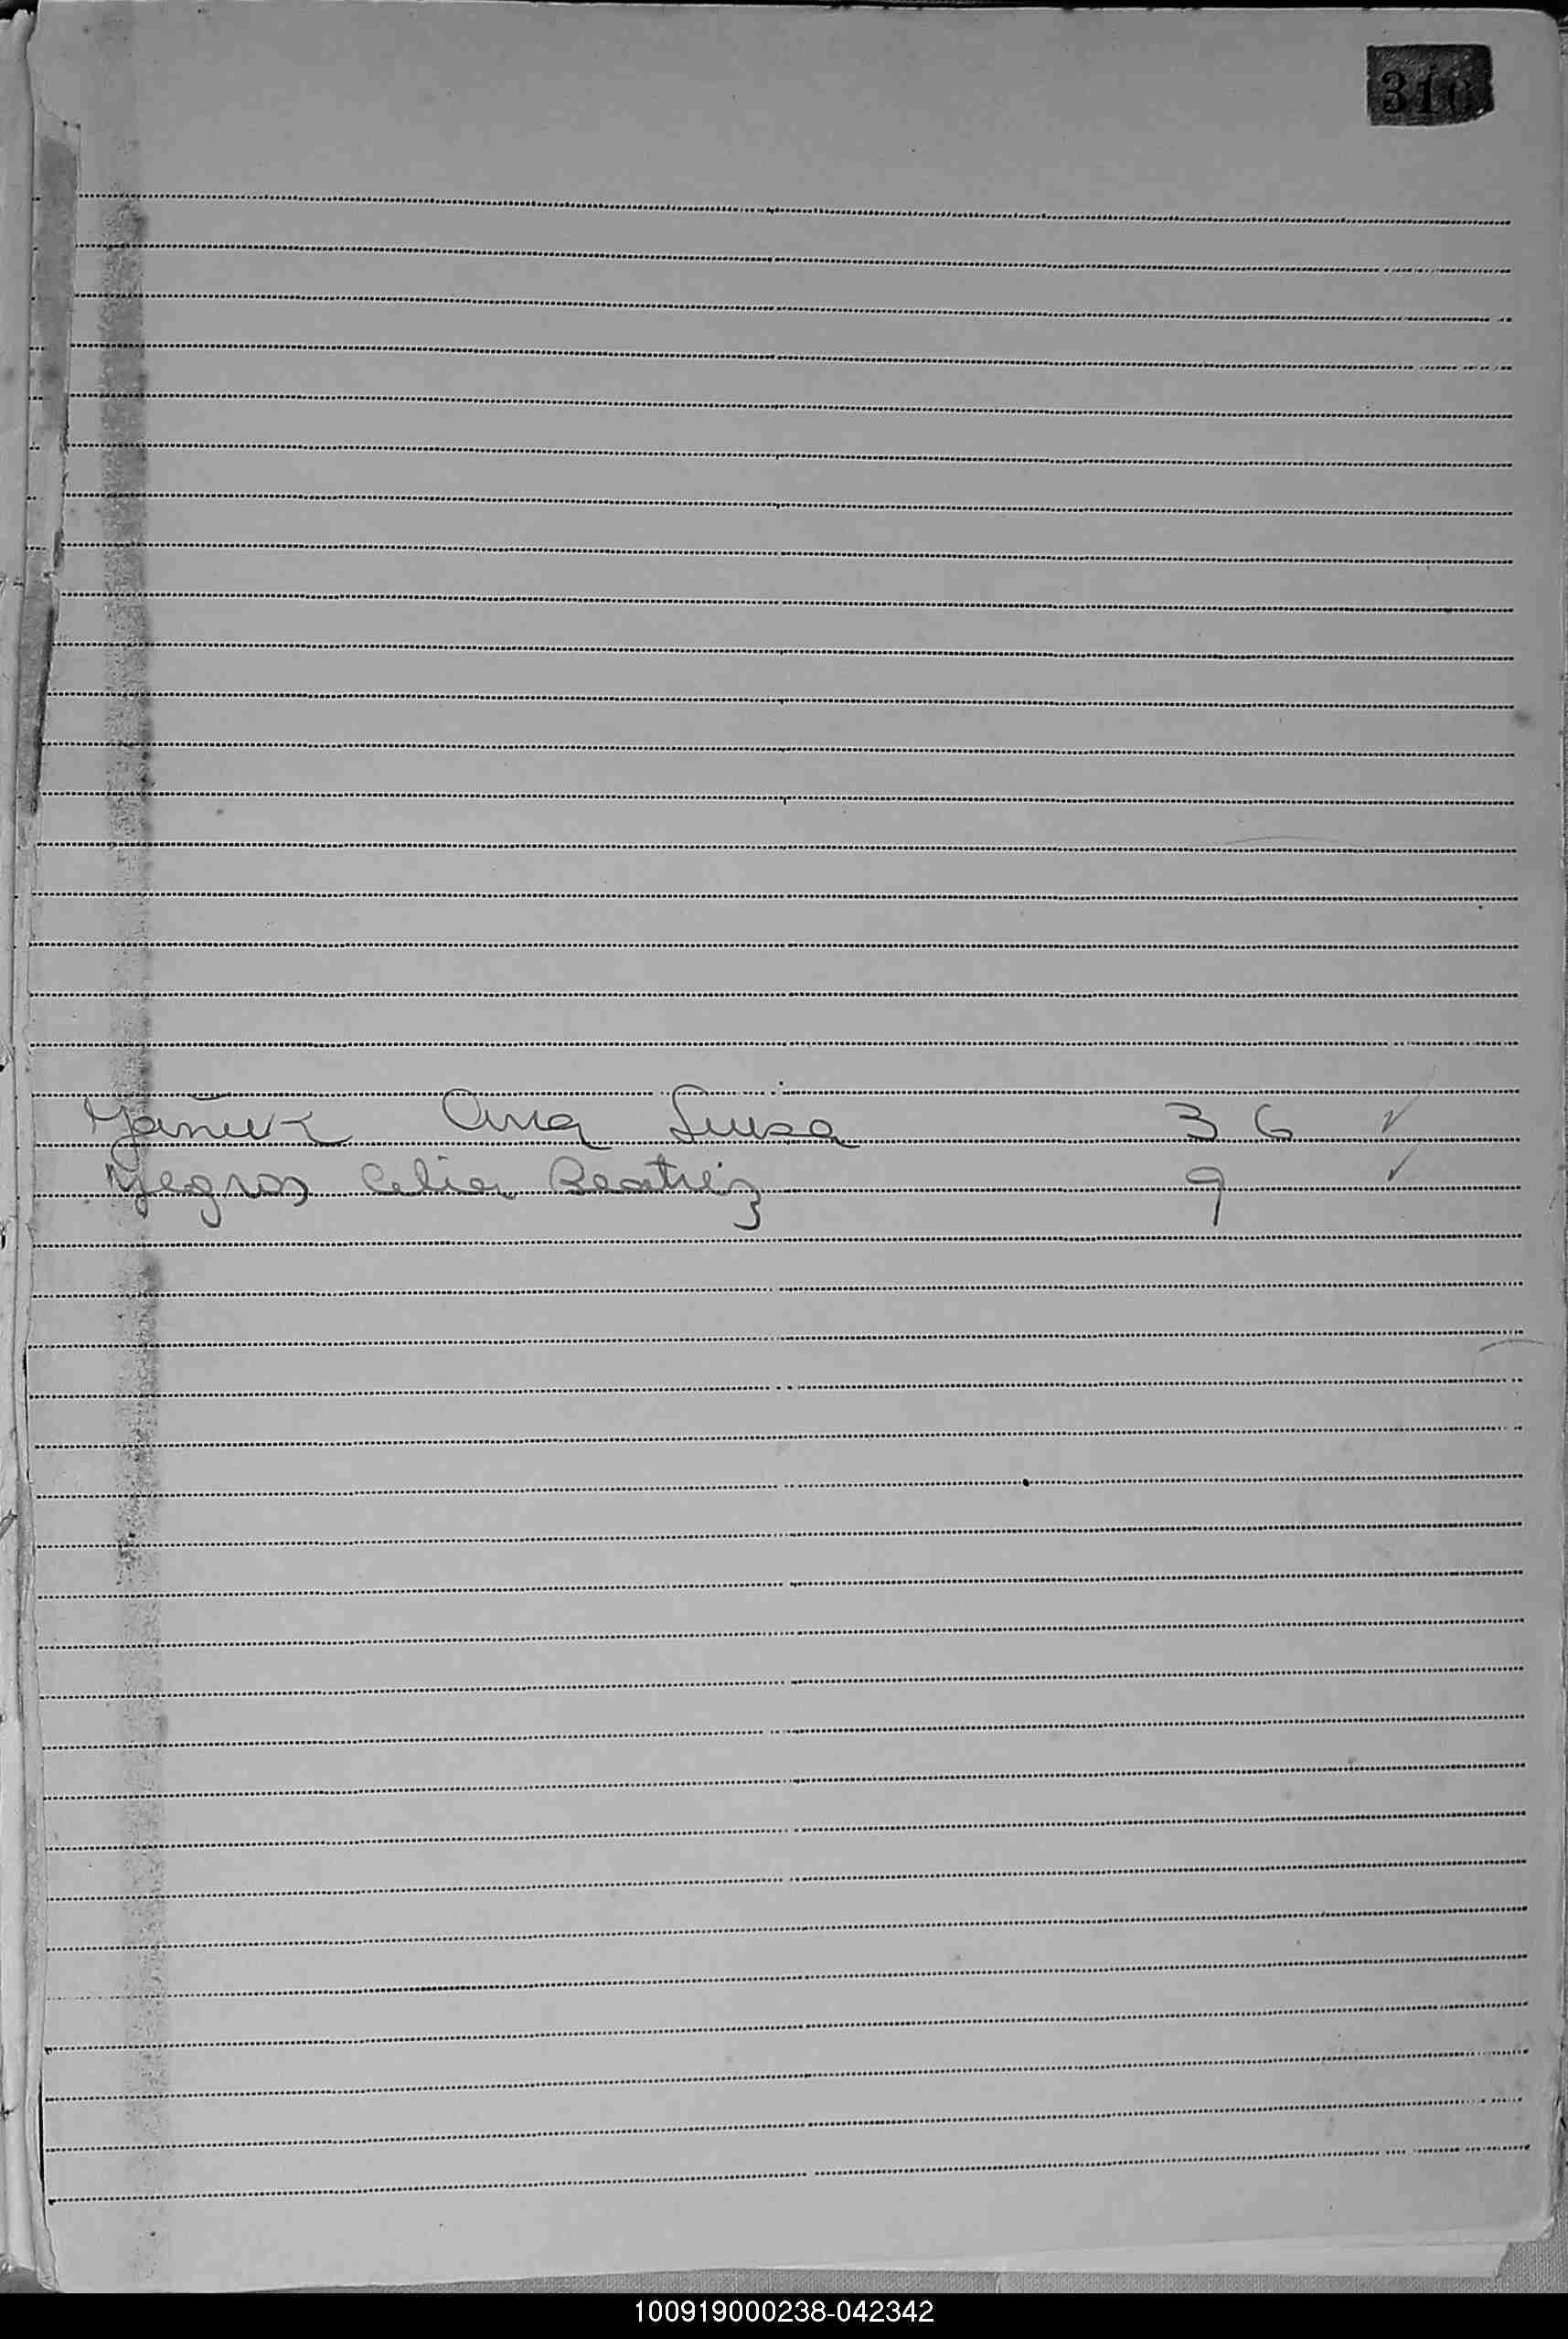 310
Yañuk Ana Luisa 36 ✓
Yegros Celia Beatriz 9 ✓
100919000238-042342